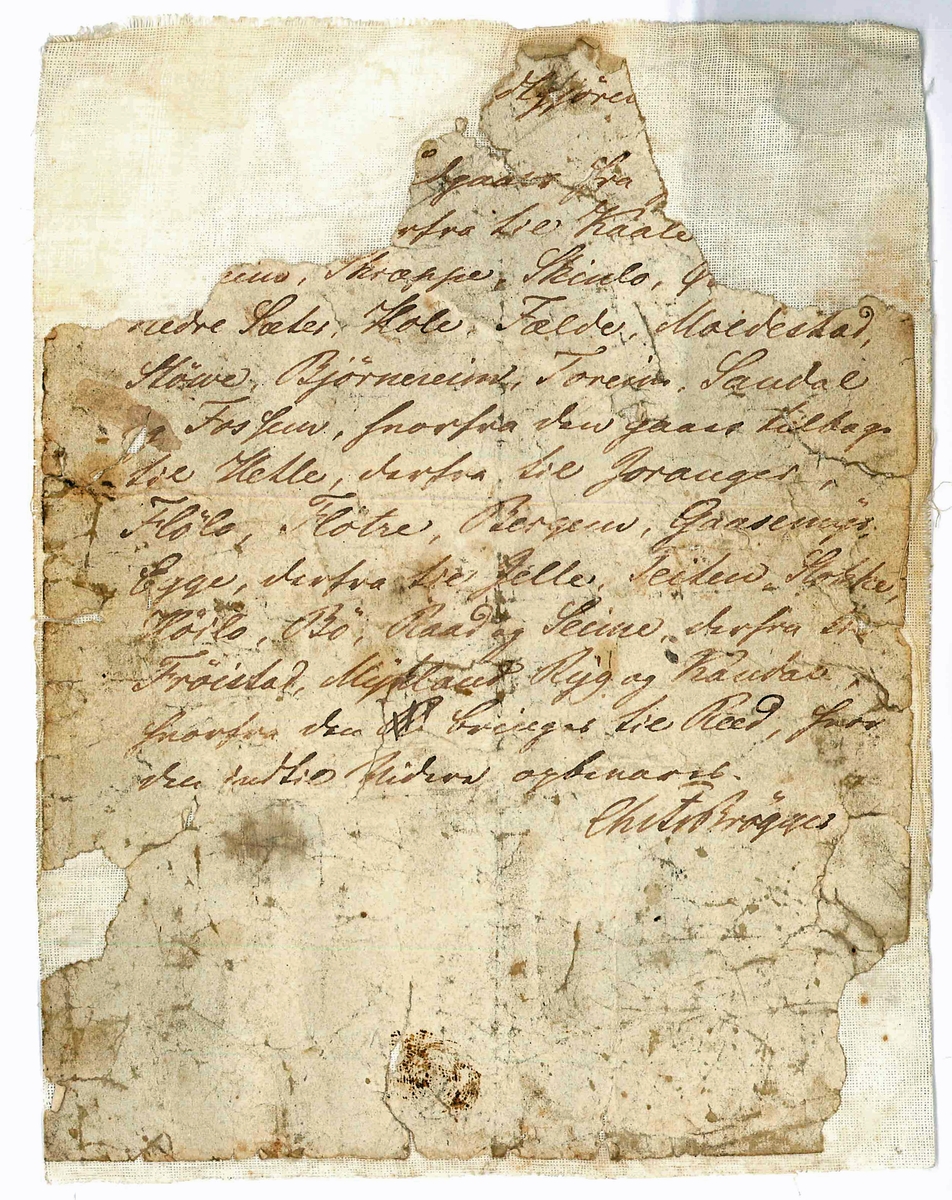 Skjøren
dgaaer fra
erfra til Kaale
Skræppe, Skinlo,
nedre Sæter, Hole, Fælde, Moldestad,
Støwe, Bjørnereim, Toreim, Sandal
og Fossem, hvorfra den gaaer tilbage
til Hetle, derfra til Joranger,
Fløtre, Bergem, Gaasemyr,
Egge, derfra til Gelle, Teiten, Stokke,
Høilo, Bø, Raad og Seime, derfra til
Frøistad, Myklant Ryg og Kandal,
hvorfra den bringes til Reed, hvor
den indtil Videre opbevares.
Chr. Brøgger